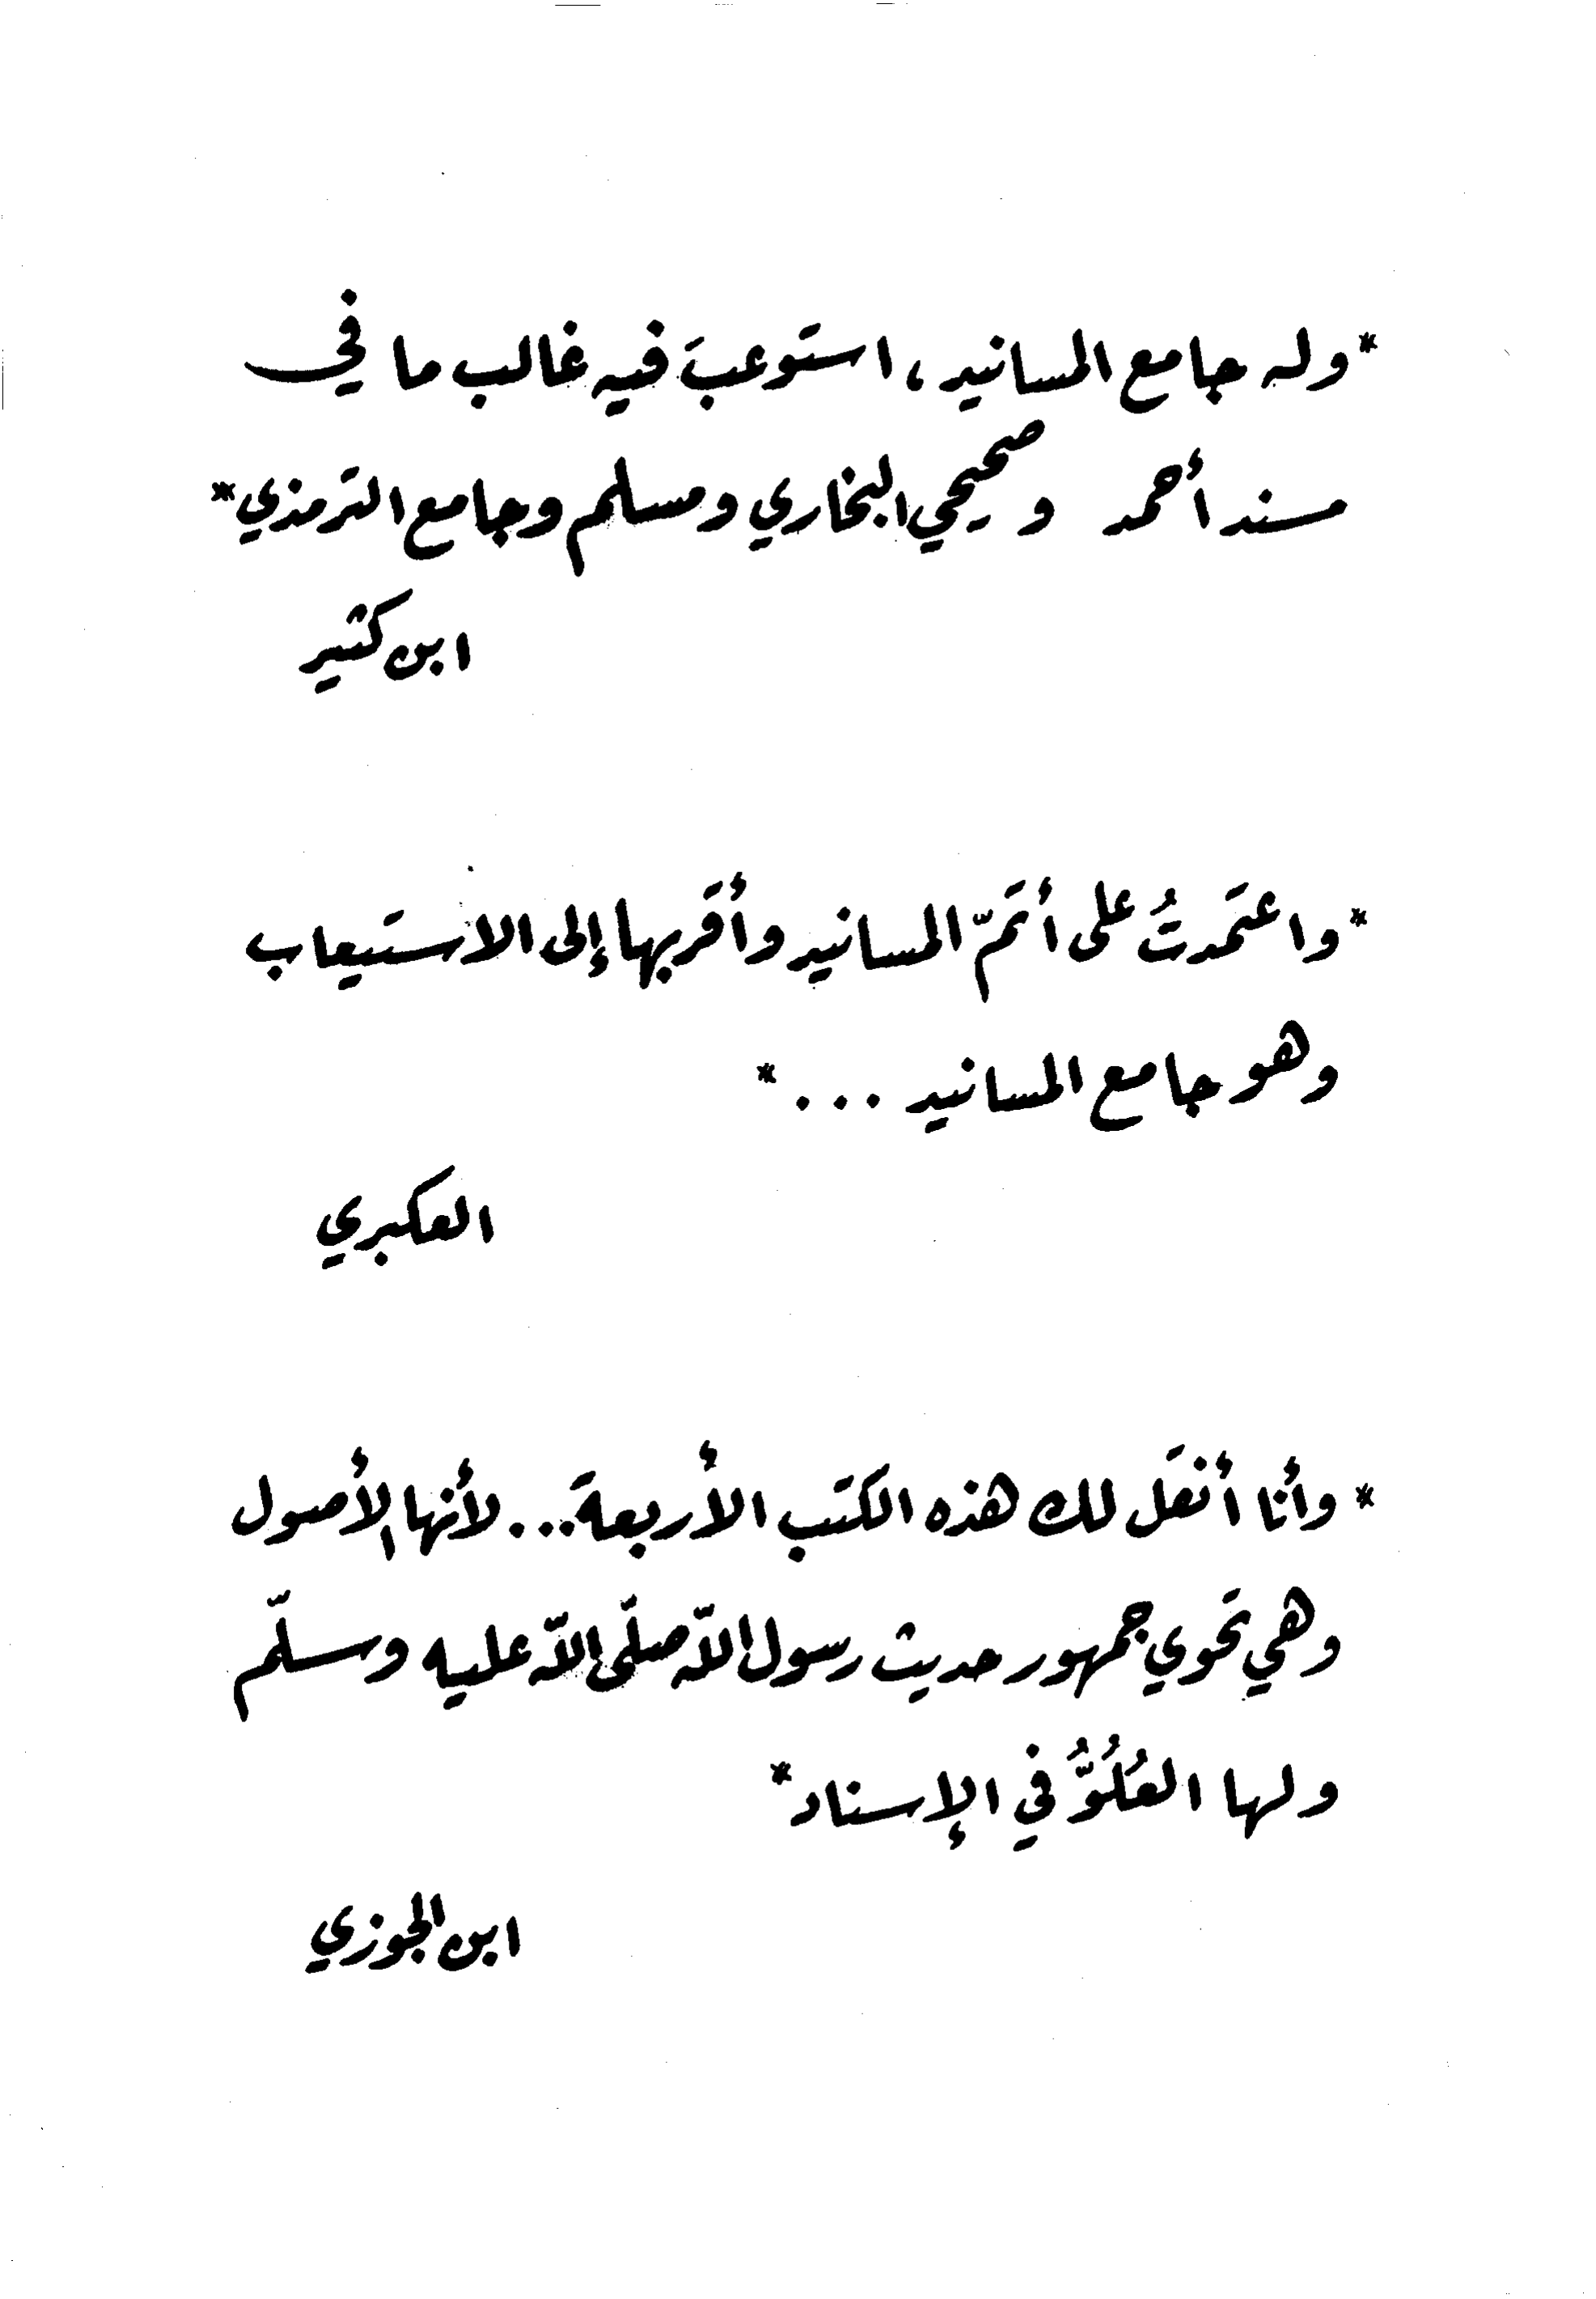 * وله جامع المسانيد، استوعبَ فيه غالب ما في
مسند أحمد وصحيحي البخاري ومسلم وجامع الترمذي *
ابن كثير
* واعتمدتُ على أتمّ المسانيد وأقربها إلى الاستيعاب
وهو جامع المسانيد ... *
العكبري
* وأنا أنقل لك هذه الكتب الأربعة... لأنها الأصول
وهي تحوي جمهور حديث رسول اللّه صلّى اللّه عليه وسلّم
ولها العُلُوُّ في الإسناد *
ابن الجوزي